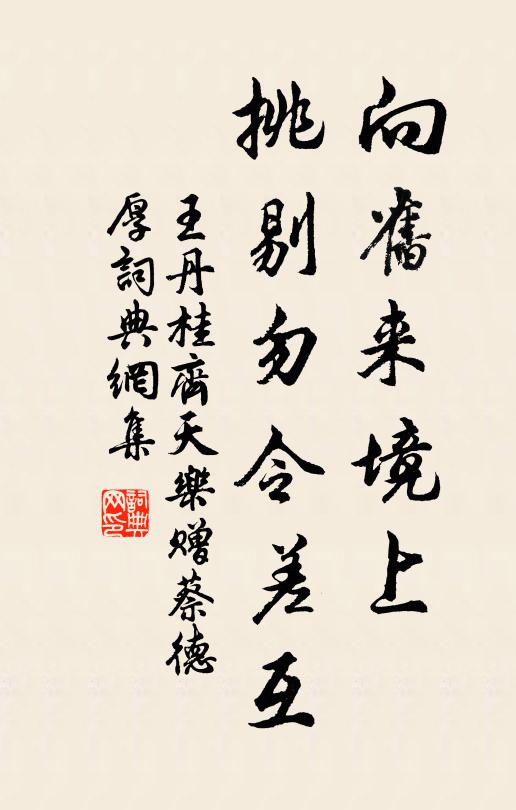 向舊来境上
挑剔勿令差互
王丹桂齊天樂赠蔡德
厚詞典網集
詞典
网印